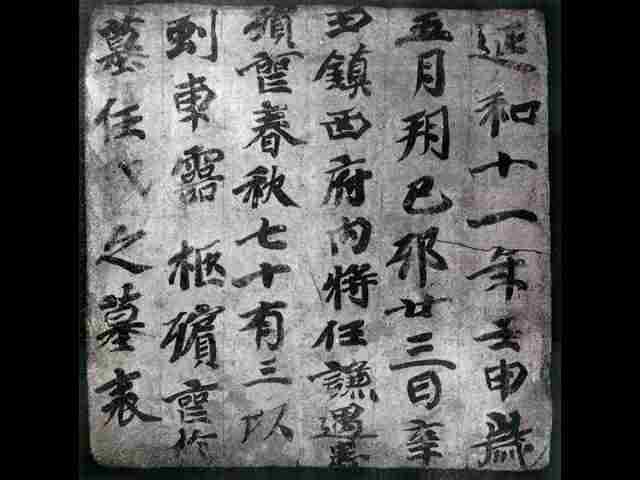 延和十一年壬申歲
五月朔己卯廿三日辛
丑鎮西府內將任謙遇患
殞喪春秋七十有三以
到東靈柩殯喪於
墓任氏之墓表